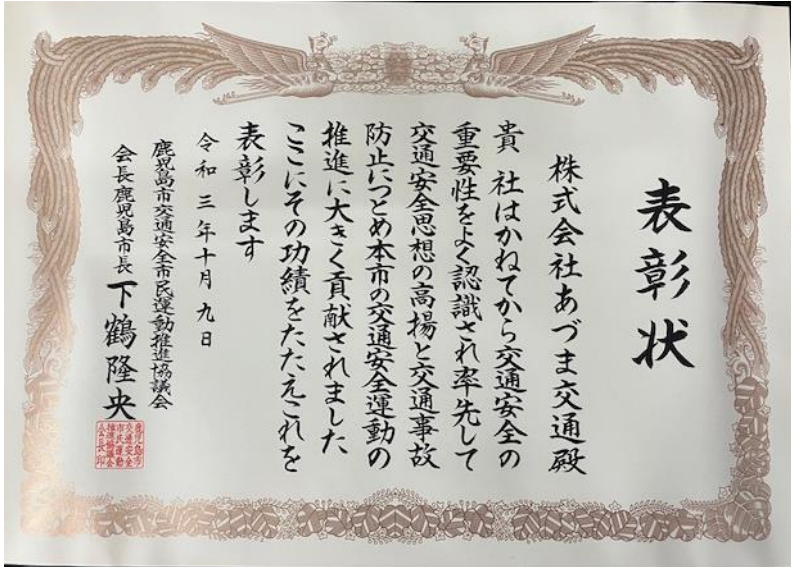 表彰状
株式会社あづま交通殿
貴社はかねてから交通安全の
重要性をよく認識され率先して
交通安全思想の高揚と交通事故
防止につとめ本市の交通安全運動の
推進に大きく貢献されました
ここにその功績をたたえこれを
表彰します
令和三年十月九日
鹿児島市交通安全市民運動推進協議会
会長鹿児島市長下鶴隆央
鹿児島市
交通安全
市民運動
推進協議会
会長印